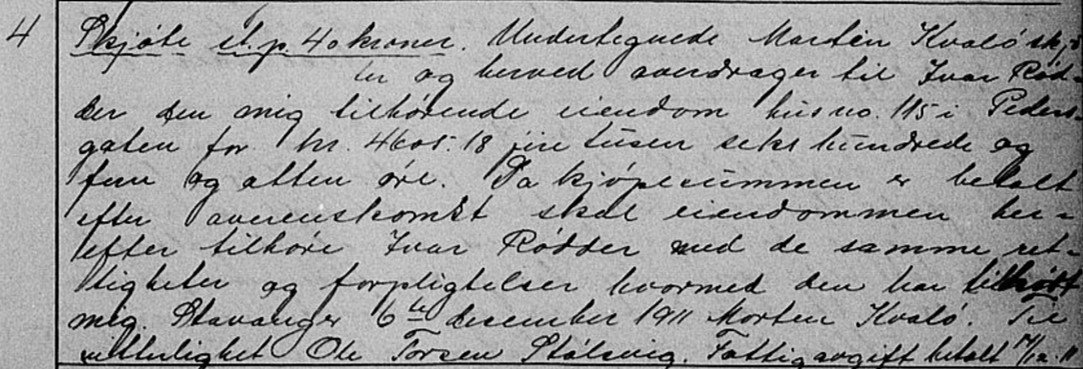 4 Skjøte st. p. 40 kroner. Undertegnede Morten Kvalø skjø-
ter og herved averdrager til Ivar Rød-
der den mig tilhørende eiendom hus no. 115 i Peders-
gaten for kr. 4605.18 fire tusen seks hundrede og
fem og atten øre. Da kjøpesummen er betalt
efter averenskomst skal eiendommen her-
efter tilhøre Ivar Rødder med de samme ret-
tigheter og forpligtelser hvormed den har tilhørt
mig. Stavanger 6te desember 1911 Morten Kvalø. Til
vitterlighet Ole Torsen Stølsvig. Fattigavgift betalt 14/12.11